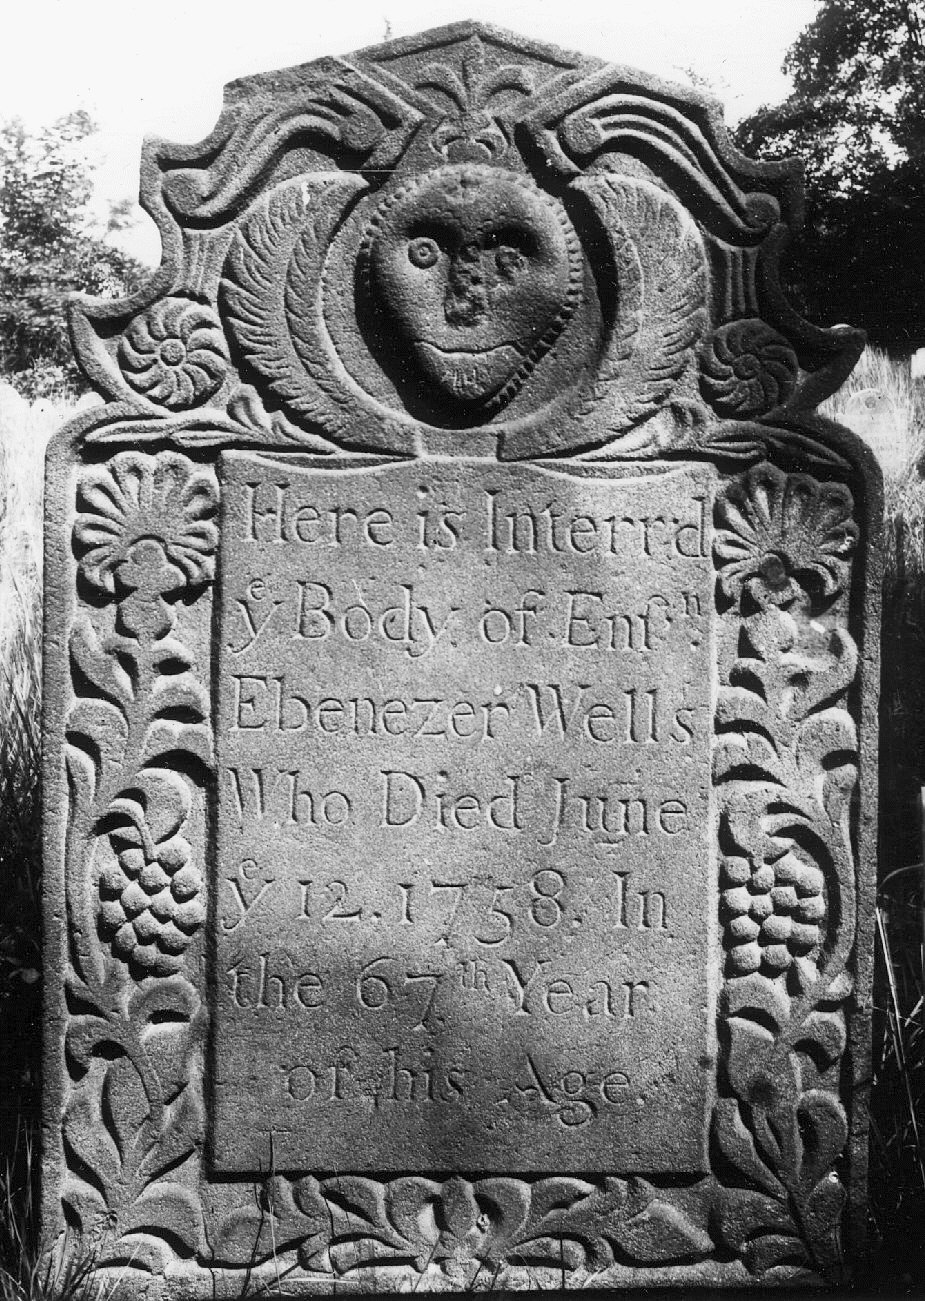 Here is Interr'd
yᵉ Body of Enſⁿ.
Ebenezer Wells
Who Died June
yᵉ 12. 1758. In
the 67ᵗʰ Year
of his Age.